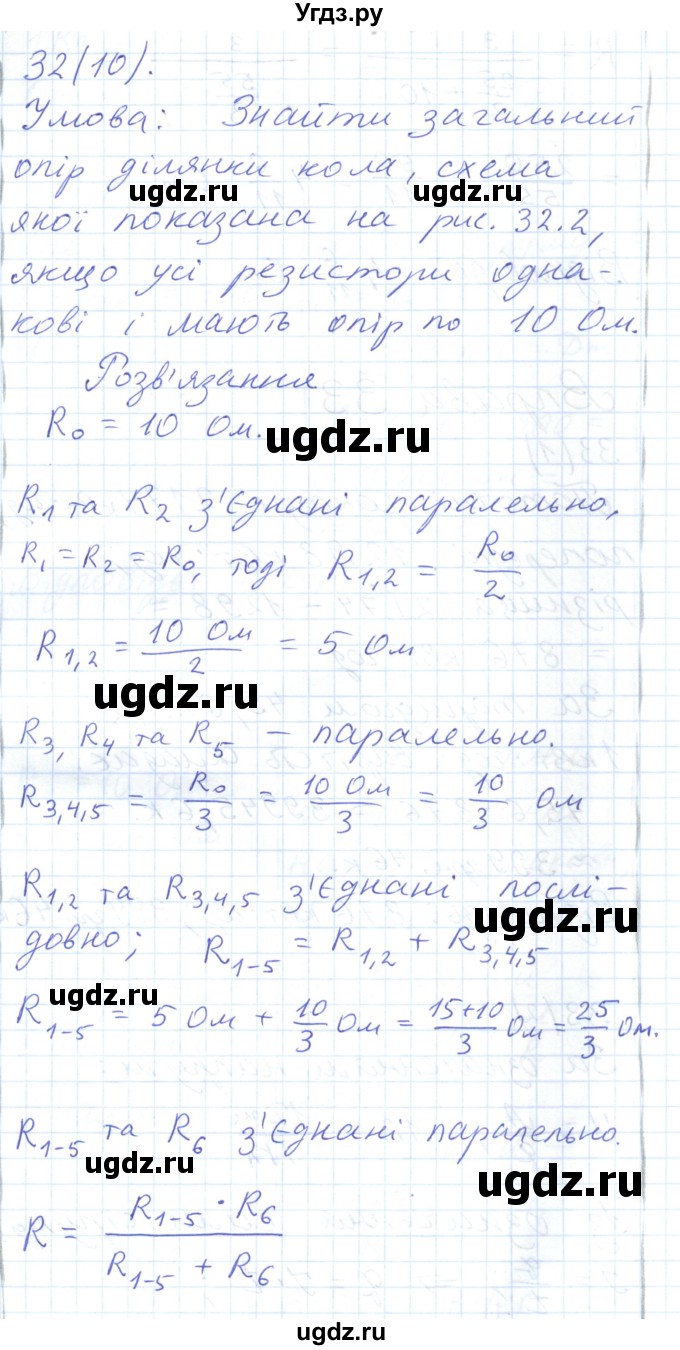 Угдз.ру
32(10).
Умова: Знайти загальний
опір ділянки кола, схема
ugdz.ru ugdz.ru
якої показана на рис. 32.2,
якщо усі резистори одна-
кові і мають опір по 10 Ом.
Розв'язання
R₀ = 10 Ом.
ugdz.ru
R₁ та R₂ з'єднані паралельно,
R₁ = R₂ = R₀, тоді R₁,₂ = R₀/2
R₁,₂ = 10 Ом/2 = 5 Ом
ugdz.ru
R₃, R₄ та R₅ – паралельно.
R₃,₄,₅ = R₀/3 = 10 Ом/3 = 10/3 Ом
R₁,₂ та R₃,₄,₅ з'єднані послі-
ugdz.ru
довно; R₁₋₅ = R₁,₂ + R₃,₄,₅
ugdz.ru
R₁₋₅ = 5 Ом + 10/3 Ом = 15+10/3 Ом = 25/3 Ом.
R₁₋₅ та R₆ з'єднані паралельно.
ugdz.ru ugdz.ru
R = R₁₋₅ · R₆/R₁₋₅ + R₆
ugdz.ru